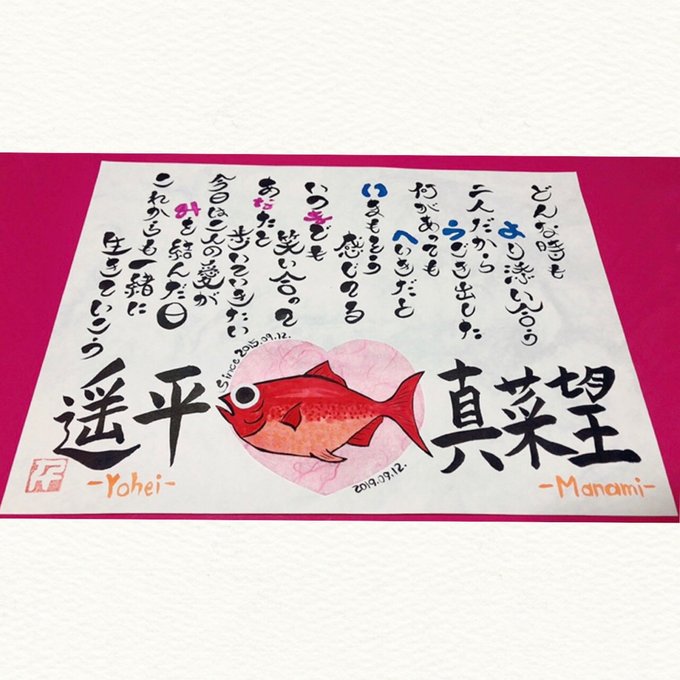 どんな時も
より添い合う
二人だから
うごき出した
何があっても
へいきだと
いまもそう
感じてる
いつまでも
笑い合って
あなたと
歩いていきたい
今日は二人の愛が
みを結んだ日
これからも一緒に
生きていこう
Since 2015.09.12.
遥平
真菜望
-Yohei-
2019.09.12.
-Manami-